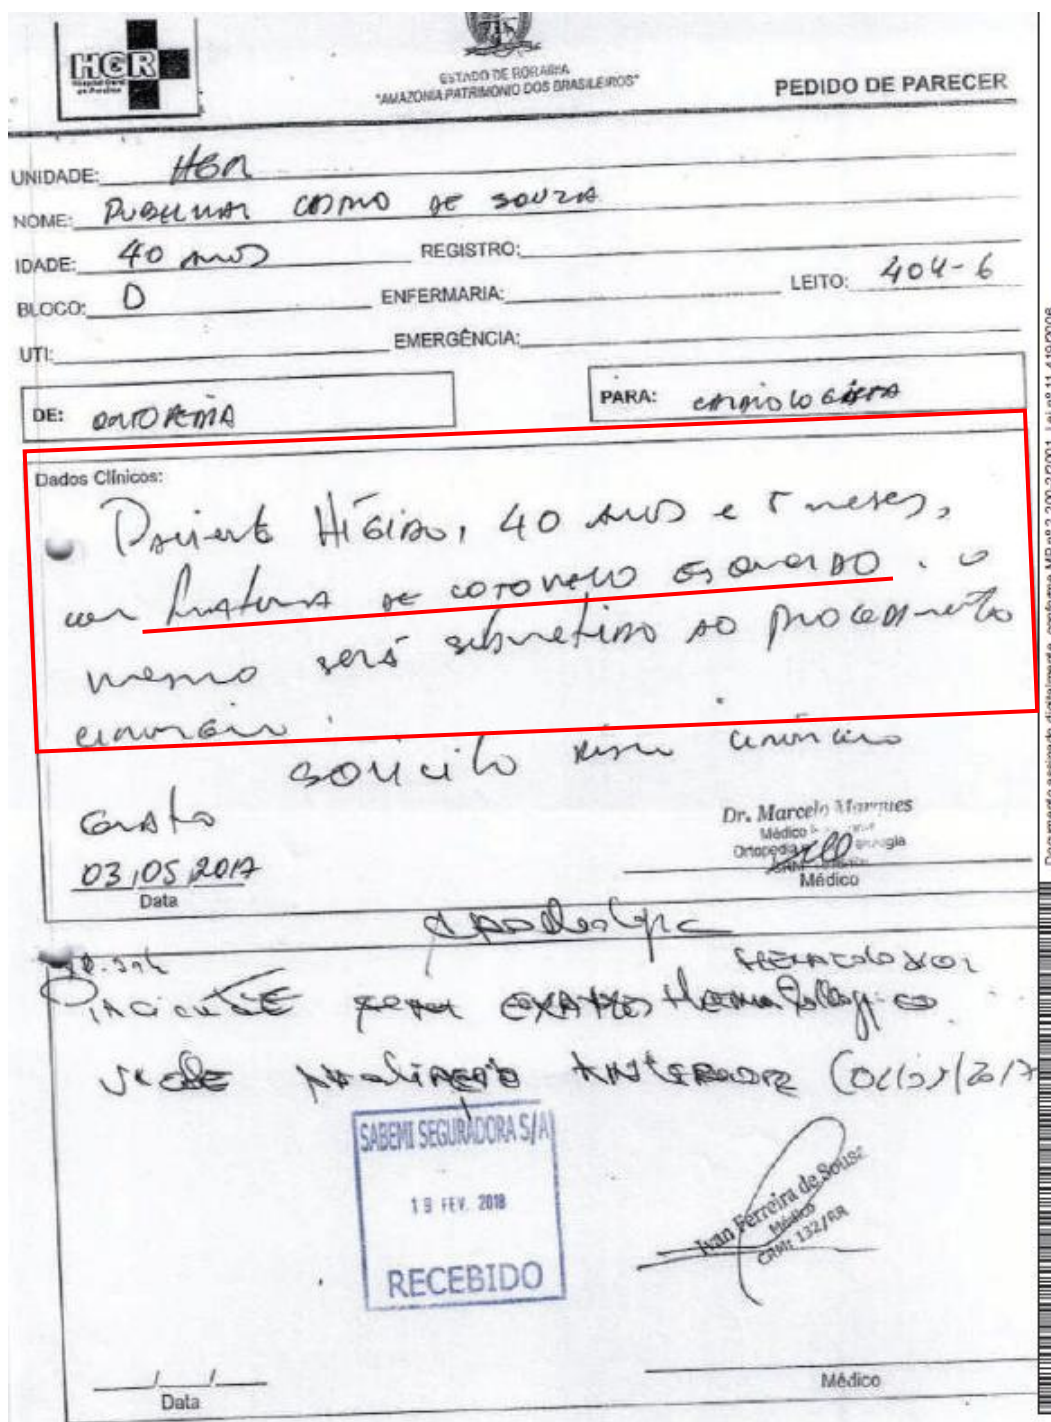 HGR
ESTADO DE RORAIMA
"AMAZONIA PATRIMONIO DOS BRASILEIROS"
PEDIDO DE PARECER
UNIDADE: HGR
NOME: DE SOUZA
IDADE: 40 anos REGISTRO:
BLOCO: D ENFERMARIA: LEITO: 404-6
UTI: EMERGÊNCIA:
DE: ORTOPEDIA PARA: CARDIOLOGISTA
Dados Clínicos:
Paciente HÍGIDO, 40 anos e 5 meses,
com fratura DE COTOVELO ESQUERDO. O
mesmo será submetido ao procedimento
cirurgico.
solicito risco cirúrgico
Grato
03/05/2017
Data
Dr. Marcelo Marques
Médico
Ortopedia
Médico
Paciente sem exames Hematologico
ANTERIOR
SABEMI SEGURADORA S/A
19 FEV. 2018
RECEBIDO
Ivan Ferreira de Sousa
Médico
CRM: 132/RR
__/__/__
Data
Médico
Documento assinado digitalmente, conforme MP nº 2.200-2/2001, Lei nº 11.419/2006